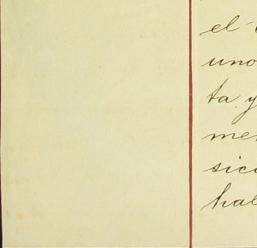 el
uno
ta y
me
sic
hal